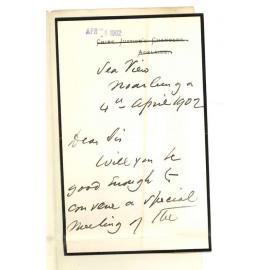 APR 1902
CHIEF JUSTICE'S CHAMBERS
ADELAIDE.
Sea View
Noarlunga
4th April 1902
Dear Sir
Will you be
good enough to
convene a special
meeting of the